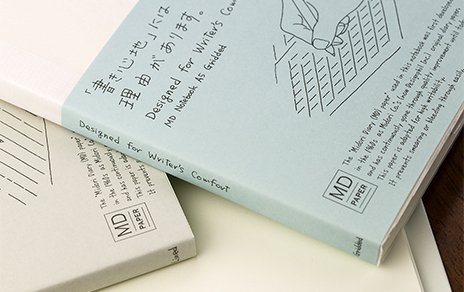 「書き心地」には
理由があります。
Designed for Writer's Comfort
MD Notebook A5 Gridded
The "Midori Diary (MD) paper" used in this notebook was first developed
in the 1960s as Midori Co's (now Designphil Inc.) original diary paper,
and has continuously gone through quality improvement until today.
This paper is adapted for high writability.
It prevents smearing or bleeding through easily.
MD
PAPER
Designed for Writer's Comfort
Gridded
The "Midori Diary (MD) paper"
in the 1960s as Midori Co
and has continuously
This paper is
It prevents
MD
PAPER
Lined